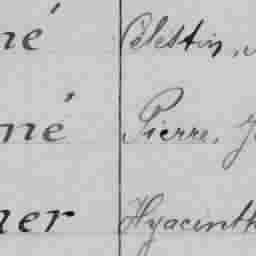 né Célestin,
mé Pierre, J
ner Hyacinth